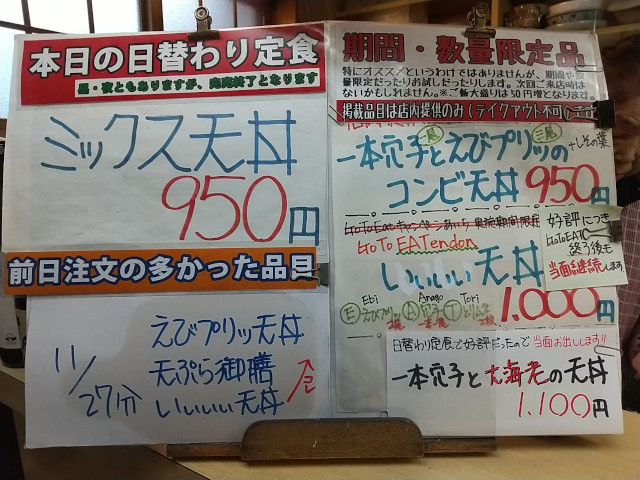 本日の日替わり定食
昼・夜ともありますが、完売終了となります
ミックス天丼
950円
前日注文の多かった品目
11/27分
えびプリッ天丼
天ぷら御膳
いいいい天丼
期間・数量限定品
特にオススメというわけではありませんが、期間や数
量限定だったりお試しだったりします。次回ご来店時は
ないかもしれません。※ご飯大盛りは50円増となります。
掲載品目は店内提供のみ(テイクアウト不可)です
一本穴子とえびプリッの
+しその葉
コンビ天丼 950円
GoToEatキャンペーンあいち 実施期間限定
GoTo EATendon
いいいい天丼
1.000円
Ebi Anago Tori
E えびプリッ 2尾 A 穴子 一本 T とりむね 2枚
好評につき
GoToEAT
終了後も
当面継続します。
日替わり定食で好評だったので 当面お出しします!!
一本穴子と大海老の天丼
1.100円